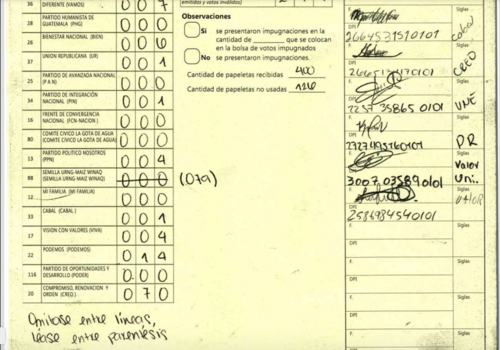 36
DIFERENTE (VAMOS)
0 0 7
28
PARTIDO HUMANISTA DE
GUATEMALA (PHG)
0 0 0
26
BIENESTAR NACIONAL (BIEN)
0 0 6
37
UNION REPUBLICANA (UR)
0 0 1
25
PARTIDO DE AVANZADA NACIONAL
(P A N)
0 0 0
34
PARTIDO DE INTEGRACIÓN
NACIONAL (PIN)
0 0 1
16
FRENTE DE CONVERGENCIA
NACIONAL (FCN-NACION )
0 0 0
80
COMITE CIVICO LA GOTA DE AGUA
(COMITE CIVICO LA GOTA DE AGUA)
0 0 0
13
PARTIDO POLITICO NOSOTROS
(PPN)
0 0 4
88
SEMILLA URNG-MAIZ WINAQ
(SEMILLA URNG-MAIZ WINAQ)
0 0 0
(079)
12
MI FAMILIA (MI FAMILIA)
0 0 0
33
CABAL (CABAL )
0 0 1
17
VISION CON VALORES (VIVA)
0 0 4
22
PODEMOS (PODEMOS)
0 1 4
116
PARTIDO DE OPORTUNIDADES Y
DESARROLLO (PODER)
0 0 0
20
COMPROMISO, RENOVACION Y
ORDEN (CREO.)
0 7 0
Omitase entre líneas,
léase entre paréntesis
emitidos y votos inválidos)
Observaciones
Si
se presentaron impugnaciones en la
cantidad de que se colocan
en la bolsa de votos impugnados
No
se presentaron impugnaciones.
Cantidad de papeletas recibidas 400
Cantidad de papeletas no usadas 126
DPI
Siglas
F.
CREO
DPI
Siglas
F.
UNE
DPI
2257 35865 0101
Siglas
F.
PR
DPI
Siglas
F.
Valor
Uni.
DPI
3007 03589 0101
Siglas
F.
VALOR
DPI
2581984540101
Siglas
F.
DPI
Siglas
F.
DPI
Siglas
F.
DPI
Siglas
F.